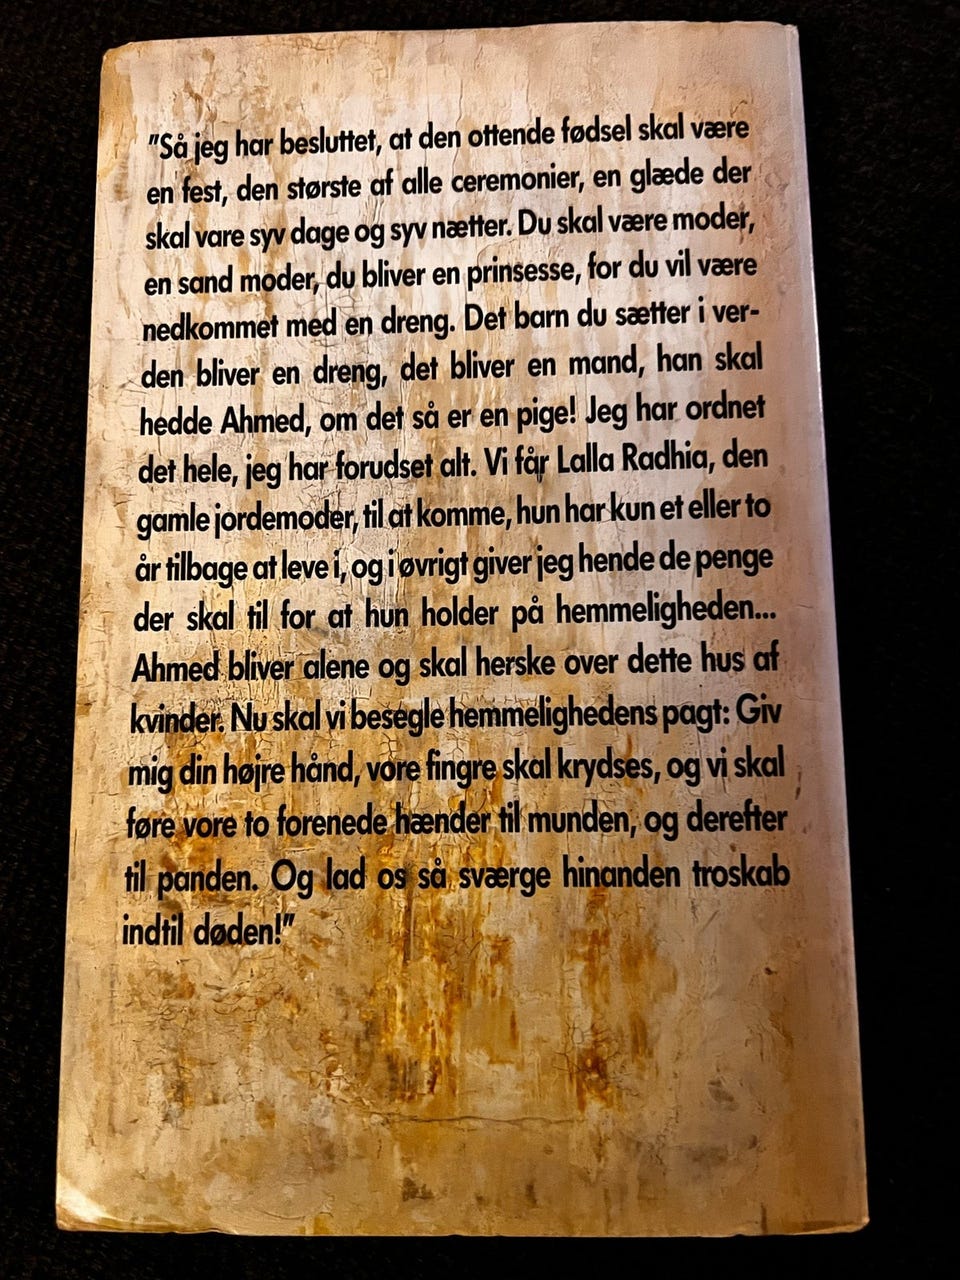 "Så jeg har besluttet, at den ottende fødsel skal være
en fest, den største af alle ceremonier, en glæde der
skal vare syv dage og syv nætter. Du skal være moder,
en sand moder, du bliver en prinsesse, for du vil være
nedkommet med en dreng. Det barn du sætter i ver-
den bliver en dreng, det bliver en mand, han skal
hedde Ahmed, om det så er en pige! Jeg har ordnet
det hele, jeg har forudset alt. Vi får Lalla Radhia, den
gamle jordemoder, til at komme, hun har kun et eller to
år tilbage at leve i, og i øvrigt giver jeg hende de penge
der skal til for at hun holder på hemmeligheden...
Ahmed bliver alene og skal herske over dette hus af
kvinder. Nu skal vi besegle hemmelighedens pagt: Giv
mig din højre hånd, vore fingre skal krydses, og vi skal
føre vore to forenede hænder til munden, og derefter
til panden. Og lad os så sværge hinanden troskab
indtil døden!"